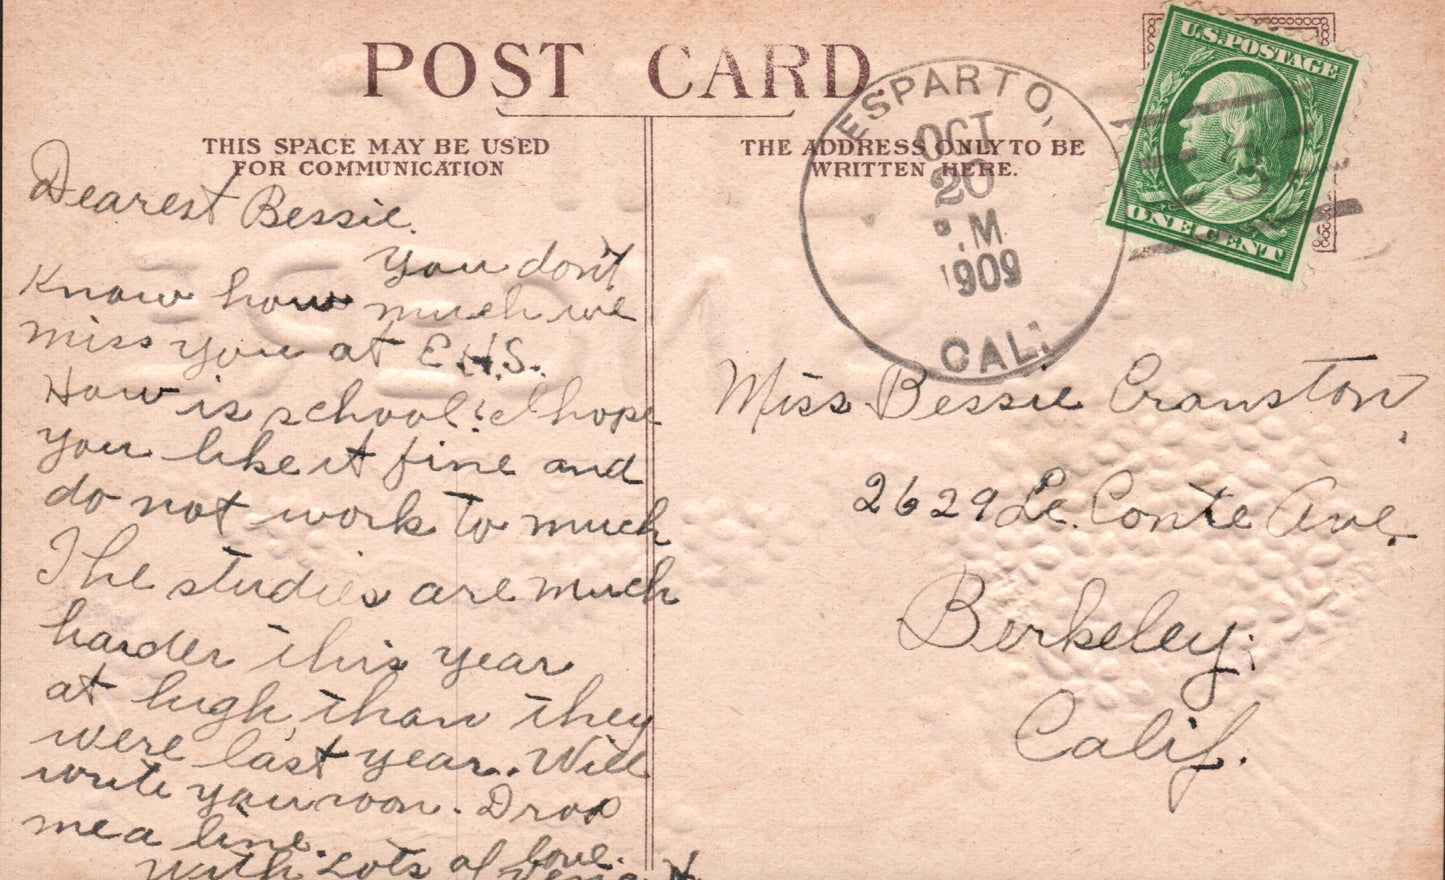 POST CARD
THIS SPACE MAY BE USED
FOR COMMUNICATION
THE ADDRESS ONLY TO BE
WRITTEN HERE.
ESPARTO,
OCT
20
.M
1909
CAL.
U.S. POSTAGE
ONE CENT
Dearest Bessie.
You don't
Know how much we
miss you at E.H.S.
How is school? I hope
you like it fine and
do not work to much
The studies are much
harder this year
at high, than they
were last year. Will
write you soon. Drop
me a line.
With Lots of love.
Miss Bessie Cranston,
2629 Le. Conte Ave.
Berkeley.
Calif.